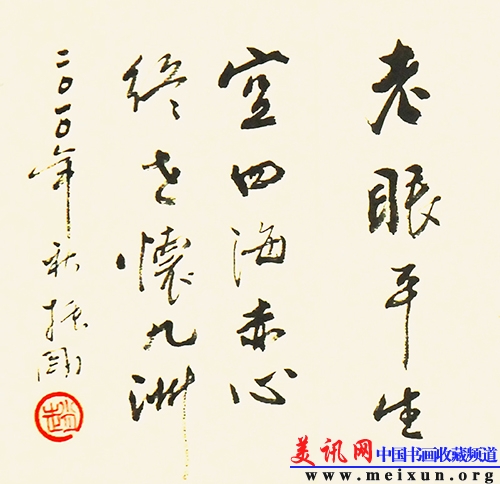 老眼平生
空四海赤心
终老怀九洲
二〇一〇年秋振刚
美讯网 中国书画收藏频道
www.meixun.org